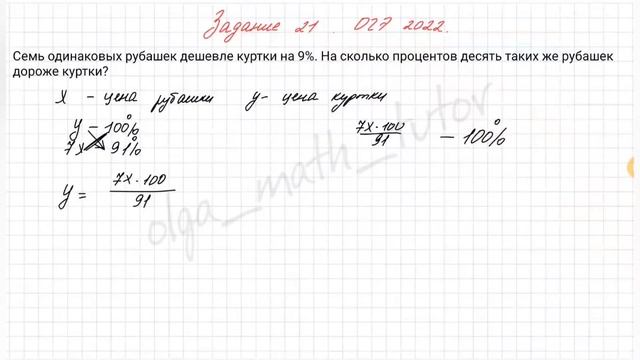 Задание 21. ОГЭ 2022.
Семь одинаковых рубашек дешевле куртки на 9%. На сколько процентов десять таких же рубашек
дороже куртки?
x – цена рубашки y – цена куртки
y – 100%
7x – 91%
y = 7x · 100 / 91
7x · 100 / 91 – 100%
olga_math_tutor